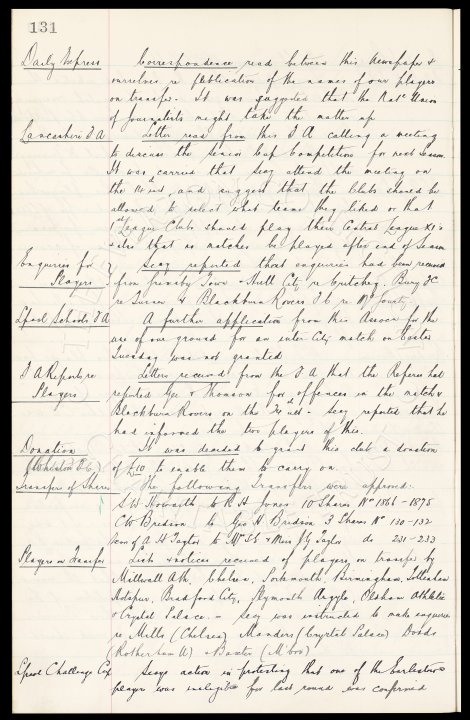 131
Daily Express Correspondence read between this newspaper &
ourselves re publication of the names of our players
on transfer. It was suggested that the Nat. Union
of Journalists might take the matter up
Lancashire F A Letter read from this F A calling a meeting
to discuss the Senior Cup Competition for next Season.
It was carried that Secy attend the meeting on
the inst, and suggest that the Clubs should be
allowed to select what teams they liked or that
1st League Clubs should play their Central League XI's
& also that no matches be played after end of Season
Enquiries for Players Secy reported that enquiries had been received
from Grimsby Town & Hull City re Critchley. Bury FC
re Turner & Blackburn Rovers F C re
Lpool Schools F A A further application from this Assocn for the
use of our ground for an inter City match on Easter
Tuesday was not granted
F A Reports re Players Letters received from the F A that the Referee had
reported Gee & Thomson for offences in the match v
Blackburn Rovers on the inst - Secy reported that he
had informed the two players of this.
Donation It was decided to grant this club a donation
(Whiston F.C.) of £10 to enable them to carry on.
Transfer of Shares The following Transfers were approved:
S W Howarth to R H Jones 10 Shares No 1866 - 1875
C W Bredson to Geo H Bredson 3 Shares No 130 - 132
of A H Taylor to Taylor do 231 - 233
Players on Transfer List & notices received of players on transfer by
Millwall Ath, Chelsea, Portsmouth, Birmingham, Tottenham
Hotspur, Bradford City, Plymouth Argyle, Oldham Athletic
& Crystal Palace. - Secy was instructed to make enquiries
re Mills (Chelsea) Manders (Crystal Palace) Dodds
(Rotherham U) & Baxter (M'bro)
Lpool Challenge Cup Secys action in protesting that one of the Earlestown
players was ineligible for last round was confirmed